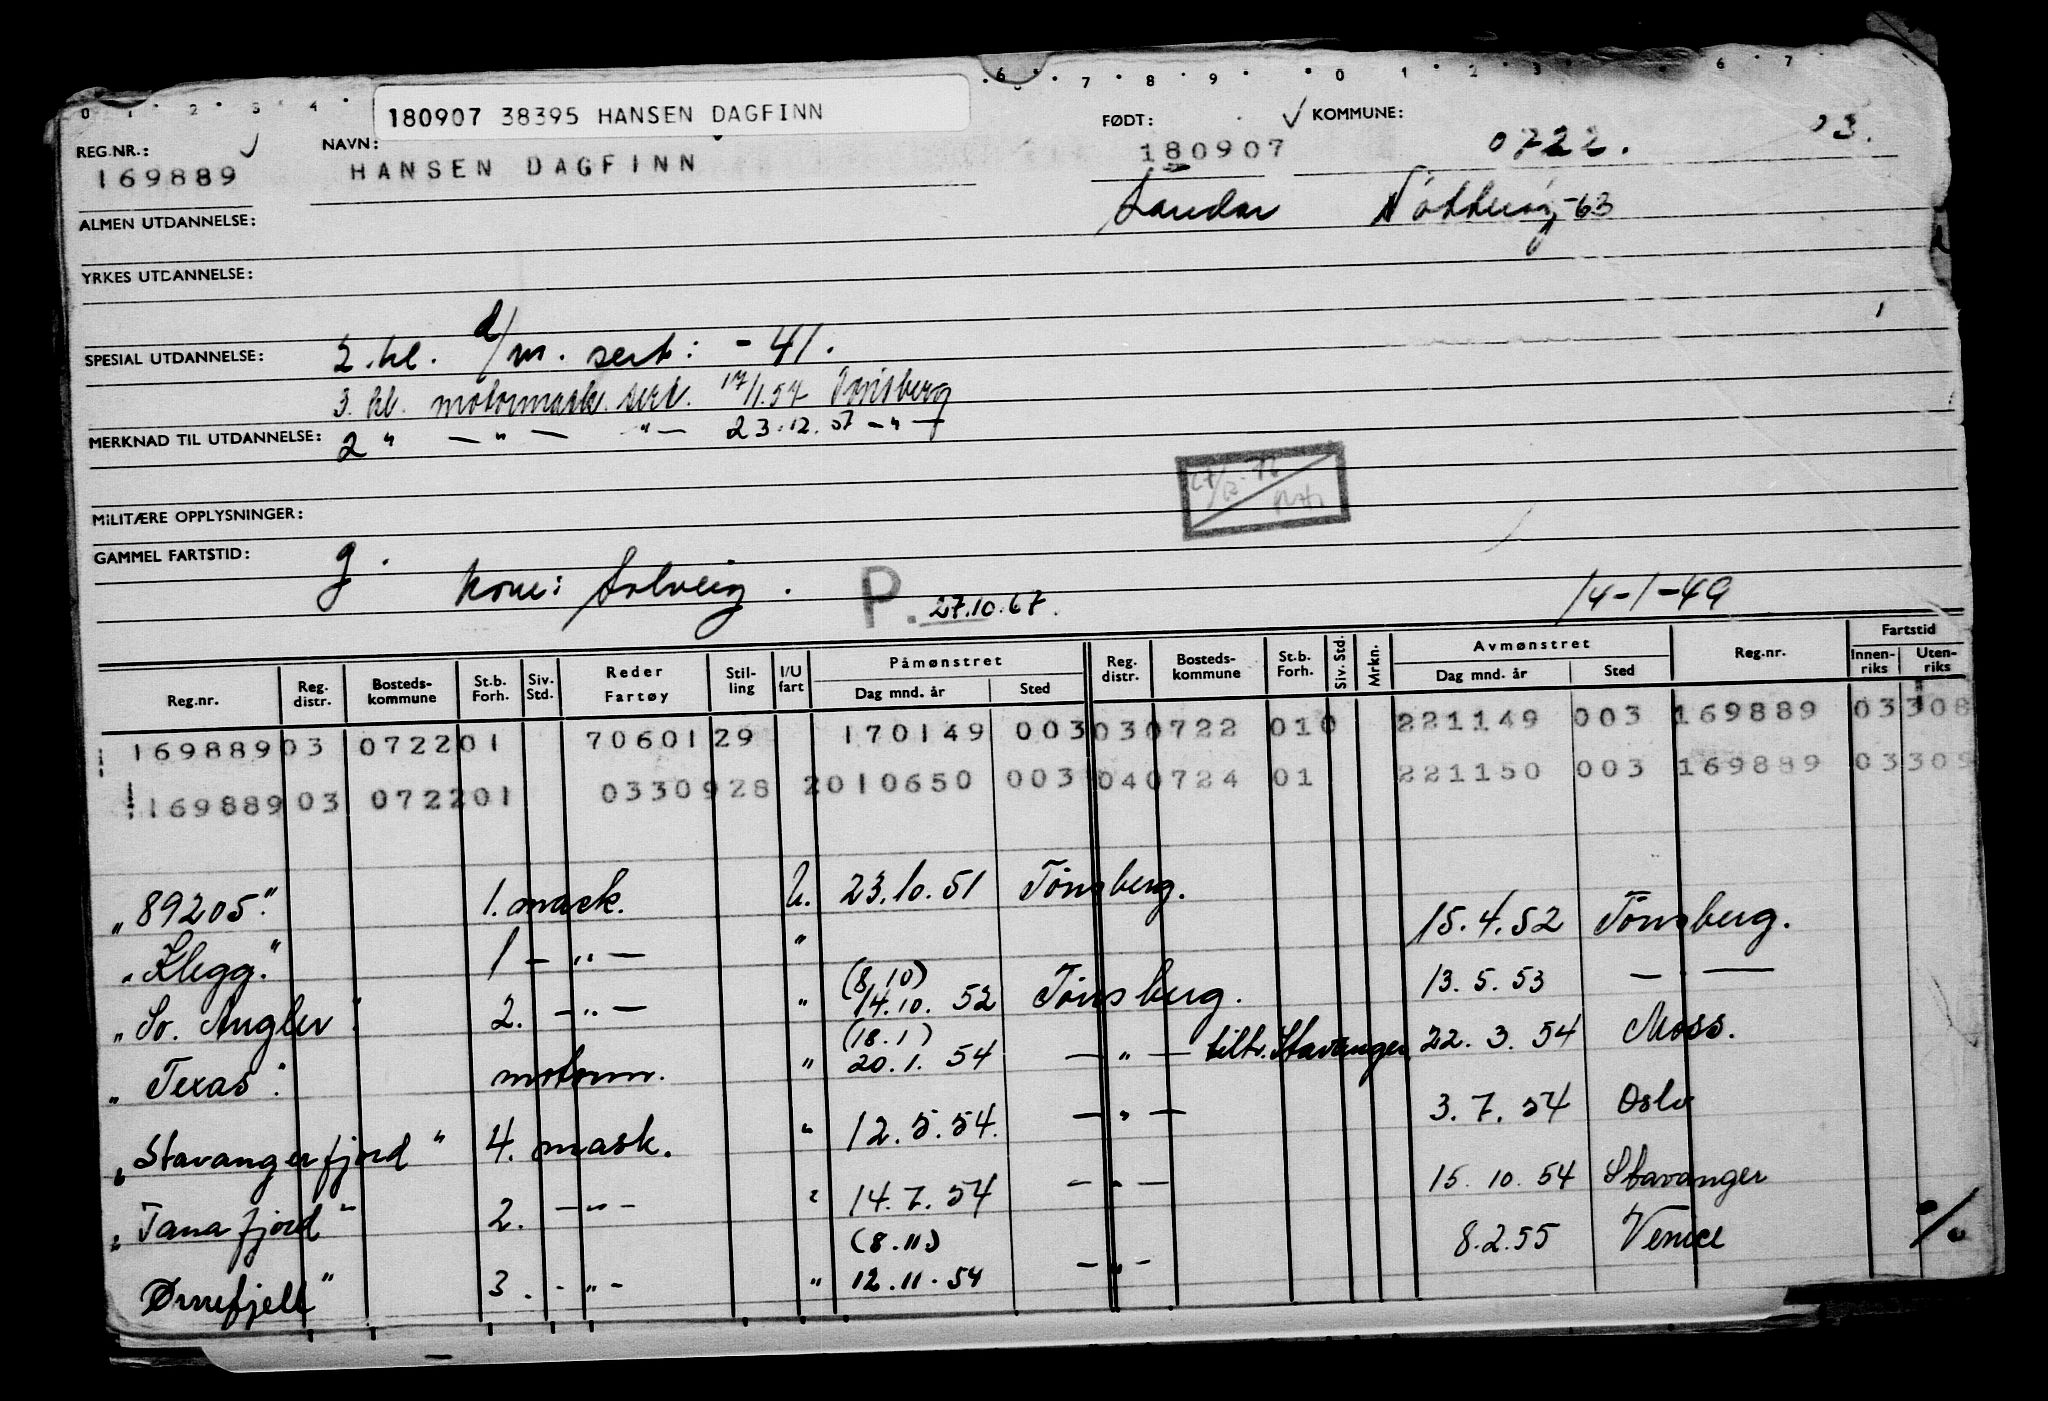 0 1 2 3 4 6 7 8 9 0 1 2 3 6 7
180907 38395 HANSEN DAGFINN
REG.NR.: NAVN: FØDT: KOMMUNE:
169889 HANSEN DAGFINN 180907 0722. 03.
Sandar Nøtterøy-63
ALMEN UTDANNELSE:
YRKES UTDANNELSE:
SPESIAL UTDANNELSE: 2. kl. d/m. sert: -41.
3. kl. motormask. sert. 17/1.54 Tønsberg
MERKNAD TIL UTDANNELSE: 2 " — " — " — 23.12.57 — " —
MILITÆRE OPPLYSNINGER:
GAMMEL FARTSTID: g.
kone: Solveig. P. 27.10.67. 14-1-49
Reg.nr. Reg. distr. Bosteds-kommune St.b. Forh. Siv. Std. Reder Fartøy Stil-ling I/U fart Påmønstret Dag mnd. år Sted Reg. distr. Bosteds-kommune St.b. Forh. Siv. Std. Mrkn. Avmønstret Dag mnd. år Sted Reg.nr. Fartstid Innen-riks Uten-riks
169889 03 0722 01 70601 29 170149 003 03 0722 010 221149 003 169889 03 308
169889 03 0722 01 03309 28 2 010650 003 04 0724 01 221150 003 169889 03 309
"89205." 1. mask. U. 23.10.51 Tønsberg. 15.4.52 Tønsberg.
"Klegg." 1 — " — " (8.10) 13.5.53 — " —
"So. Angler" 2. — " — " 14.10.52 Tønsberg.
"Texas". motorm. " (18.1) 20.1.54 — " — tiltr. Stavanger 22.3.54 Moss.
"Stavangerfjord" 4. mask. " 12.5.54. — " — 3.7.54 Oslo
"Tanafjord" 2. — " — " 14.7.54 — " — 15.10.54 Stavanger
Ørnefjell" 3. - " - " (8.11) 12.11.54 - " - 8.2.55 Venice ./.